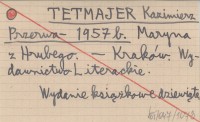 TETMAJER Kazimierz
Przerwa - 1957 b. Maryna
z Hrubego. — Kraków. Wy-
dawnictwo Literackie.
Wydanie książkowe dziewiąte